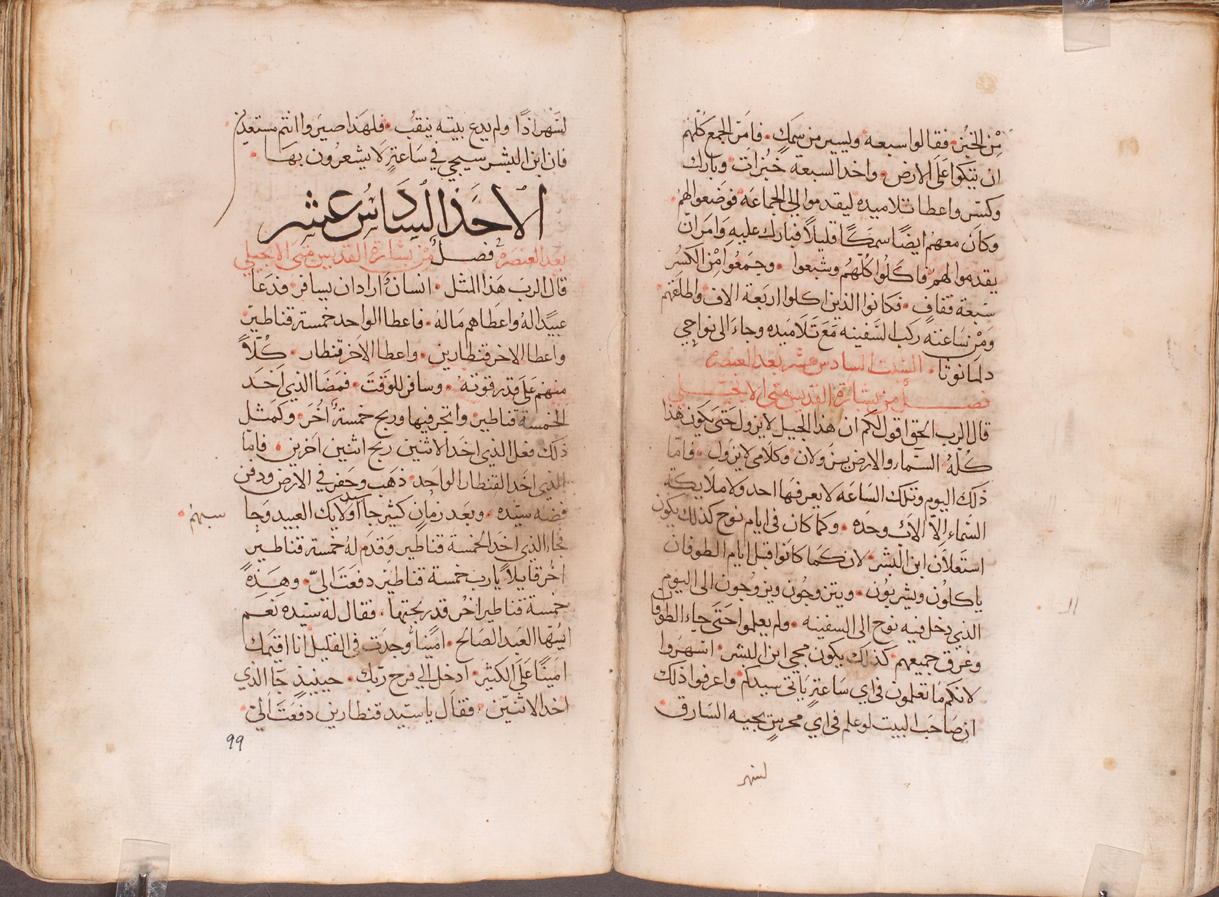 من الخبز فقالوا سبعه ويسير من سمك فامر الجمع كلهم
ان يتكوا على الارض واخد السبعة خبزات وبارك
وكسر واعطا تلاميده ليقدموا الى الجماعة فوضعوا لهم
وكان معهم ايضًا سمكًا قليلاً فبارك عليه وامر ان
يقدموا لهم فاكلوا كلهم وشبعوا وجمعوا من الكسر
سبعة قفاف فكانوا الذين اكلوا اربعة الاف واطلقهم
ومن ساعته ركب السفينه مع تلاميده وجاء الى نواحي
دلمانوتا السبت السادس عشر بعد العنصره
فصل من بشارة القديس متى الانجيلي
قال الرب الحق اقول لكم ان هذا الجيل لا يزول حتى يكون هذا
كله السماء والارض يزولان وكلامي لا يزول وامّا
ذلك اليوم وتلك الساعه لا يعرفها احد ولا ملايكة
السماء الاّ الاب وحده وكما كان في ايام نوح كذلك يكون
استعلان ابن البشر لان كما كانوا قبل ايام الطوفان
ياكلون ويشربون ويتزوجون ويزوجون الى اليوم
الذي دخل فيه نوح الى السفينه ولم يعلموا حتى جاء الطوفا
وغرق جميعهم كذلك يكون مجي ابن البشر اسهروا
لانكم ما تعلمون في اي ساعةٍ ياتي سيدكم واعرفوا ذلك
ان صاحب البيت لو علم في اي محرسٍ يجيه السارق
لسهر
لسهر اذًا ولم يدع بيته ينقب فلهذا صيروا انتم مستعدين
فان ابن البشر سيجي في ساعةٍ لا يشعرون بها
الاحد السادس عشر
بعد العنصره فصل من بشارة القديس متى الانجيلي
قال الرب هذا المثل انسان اراد ان يسافر فدعا
عبيدا له واعطاهم ماله فاعطا الواحد خمسة قناطير
واعطا الاخر قنطارين واعطا الاخر قنطار كلاً
منهم على قدر قوته وسافر للوقت فمضا الذي اخد
الخمسة قناطير واتجر فيها وربح خمسة اُخر وكمثل
ذلك فعل الذي اخد الاثنين ربح اثنين اخرين فامّا
الذي اخد القنطار الواحد ذهب وحفر في الارض ودفن
فضه سيّده وبعد زمانٍ كثير جا اولايك العبيد وحا
سبهم
فجا الذي اخد الخمسة قناطير وقدم له خمسة قناطير
اخر قايلاً يارب خمسة قناطير دفعت اليّ وهذه
خمسة قناطير اخر قد ربحتها فقال له سيّده نعم
ايّها العبد الصالح امينًا وجدت في القليل انا اقيمك
امينًا على الكثير ادخل الى فرح ربك حينيذٍ جا الذي
اخد الاثنين فقال يا سيّد قنطارين دفعت اليّ
99